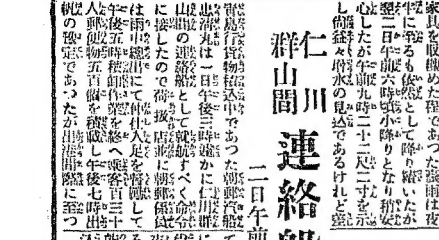 家具を収纜めた程であった强雨は夜
半に到るも依然として降り續いたが
翌二日午前六時頃小降りとなり稍安
心したが午前九時二十二尺二寸を示
し尙益々增水の見込であるけれど差
仁川
群山間
連絡船
二日午前
靑島行貨物積込中であつた朝郵汽船
忠淸丸は一日午後三時遽かに仁川群
山間の連絡船として就航すべく命令
に接したので荷扱店並に朝郵係員
は雨中總出にて仲仕人足を督勵して
午後五時積卸作業を終へ乘客百三十
人郵便物五百個を積載し午後七時出
帆の豫定であつたが出港間際に至つ